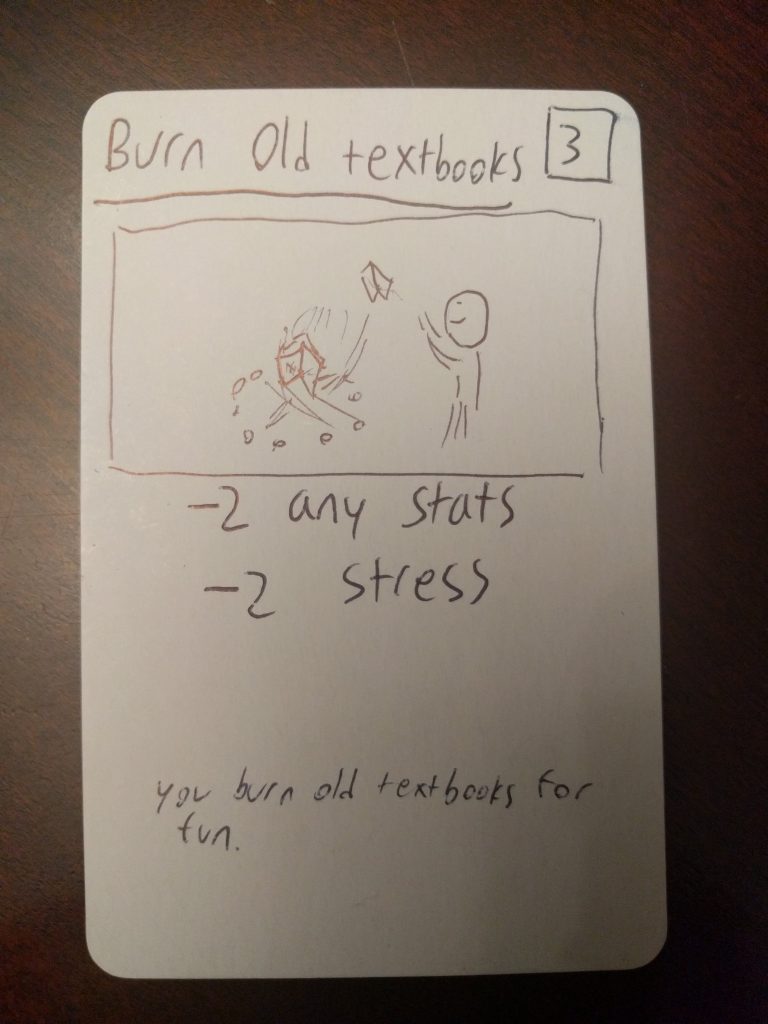 Burn Old textbooks 3
-2 any stats
-2 stress
you burn old textbooks for
fun.